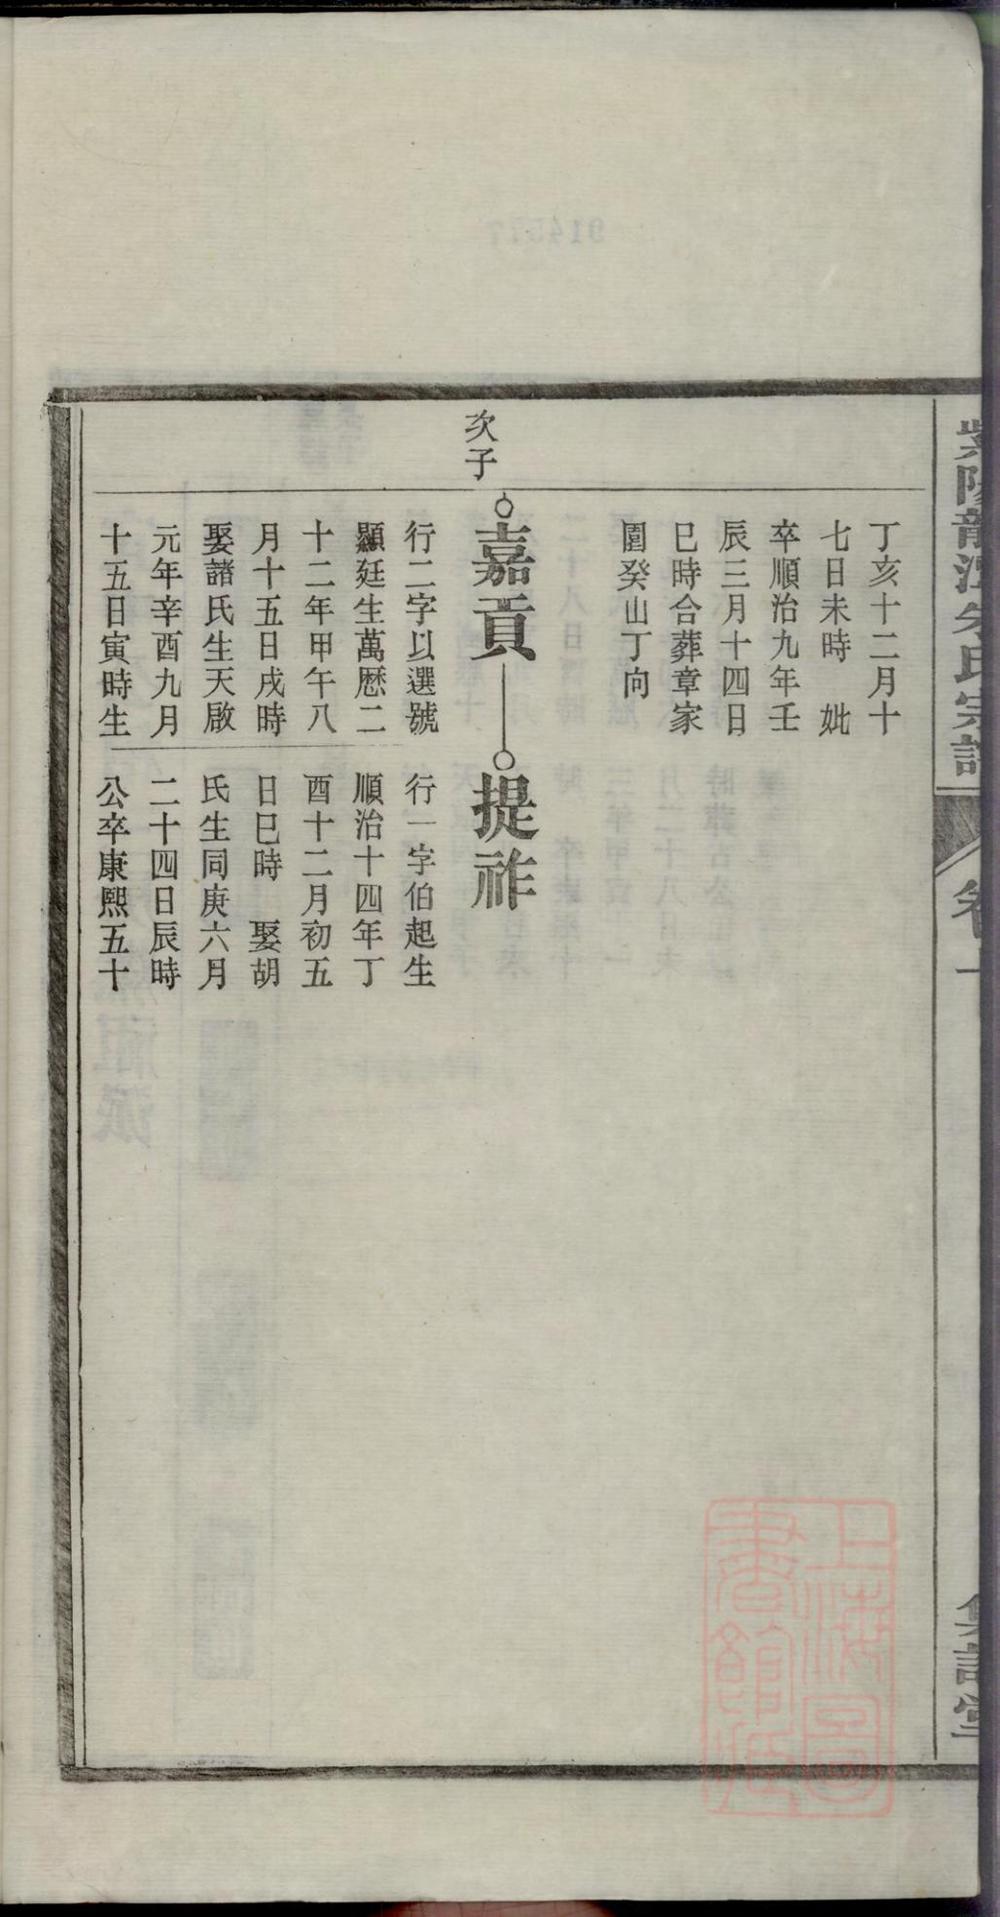 丁亥十二月十
七日未時　妣
卒順治九年壬
辰三月十四日
巳時合葬章家
圍癸山丁向
次子
嘉貢
行二字以選號
顯廷生萬厯二
十二年甲午八
月十五日戌時
娶諸氏生天啟
元年辛酉九月
十五日寅時生
提祚
行一字伯起生
順治十四年丁
酉十二月初五
日巳時　娶胡
氏生同庚六月
二十四日辰時
公卒康熙五十
上海圖書館藏